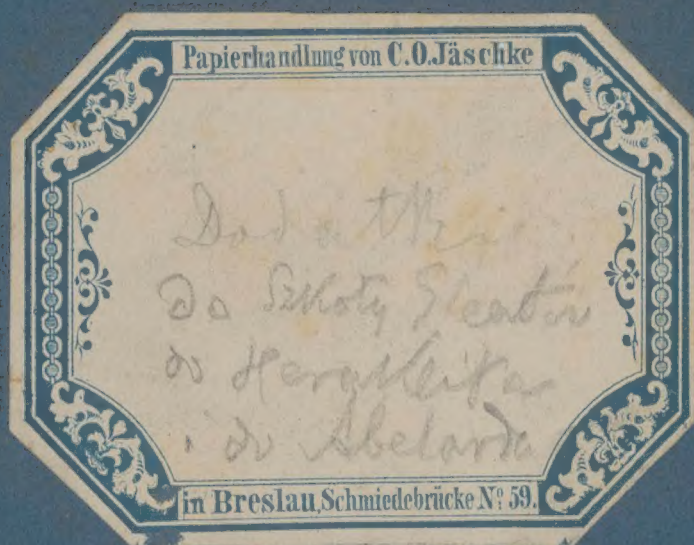 Papierhandlung von C.O.Jäschke
Dodatki
do Szkoły Eleatów
do Heraklita
i do Abelarda
in Breslau, Schmiedebrücke Nº 59.